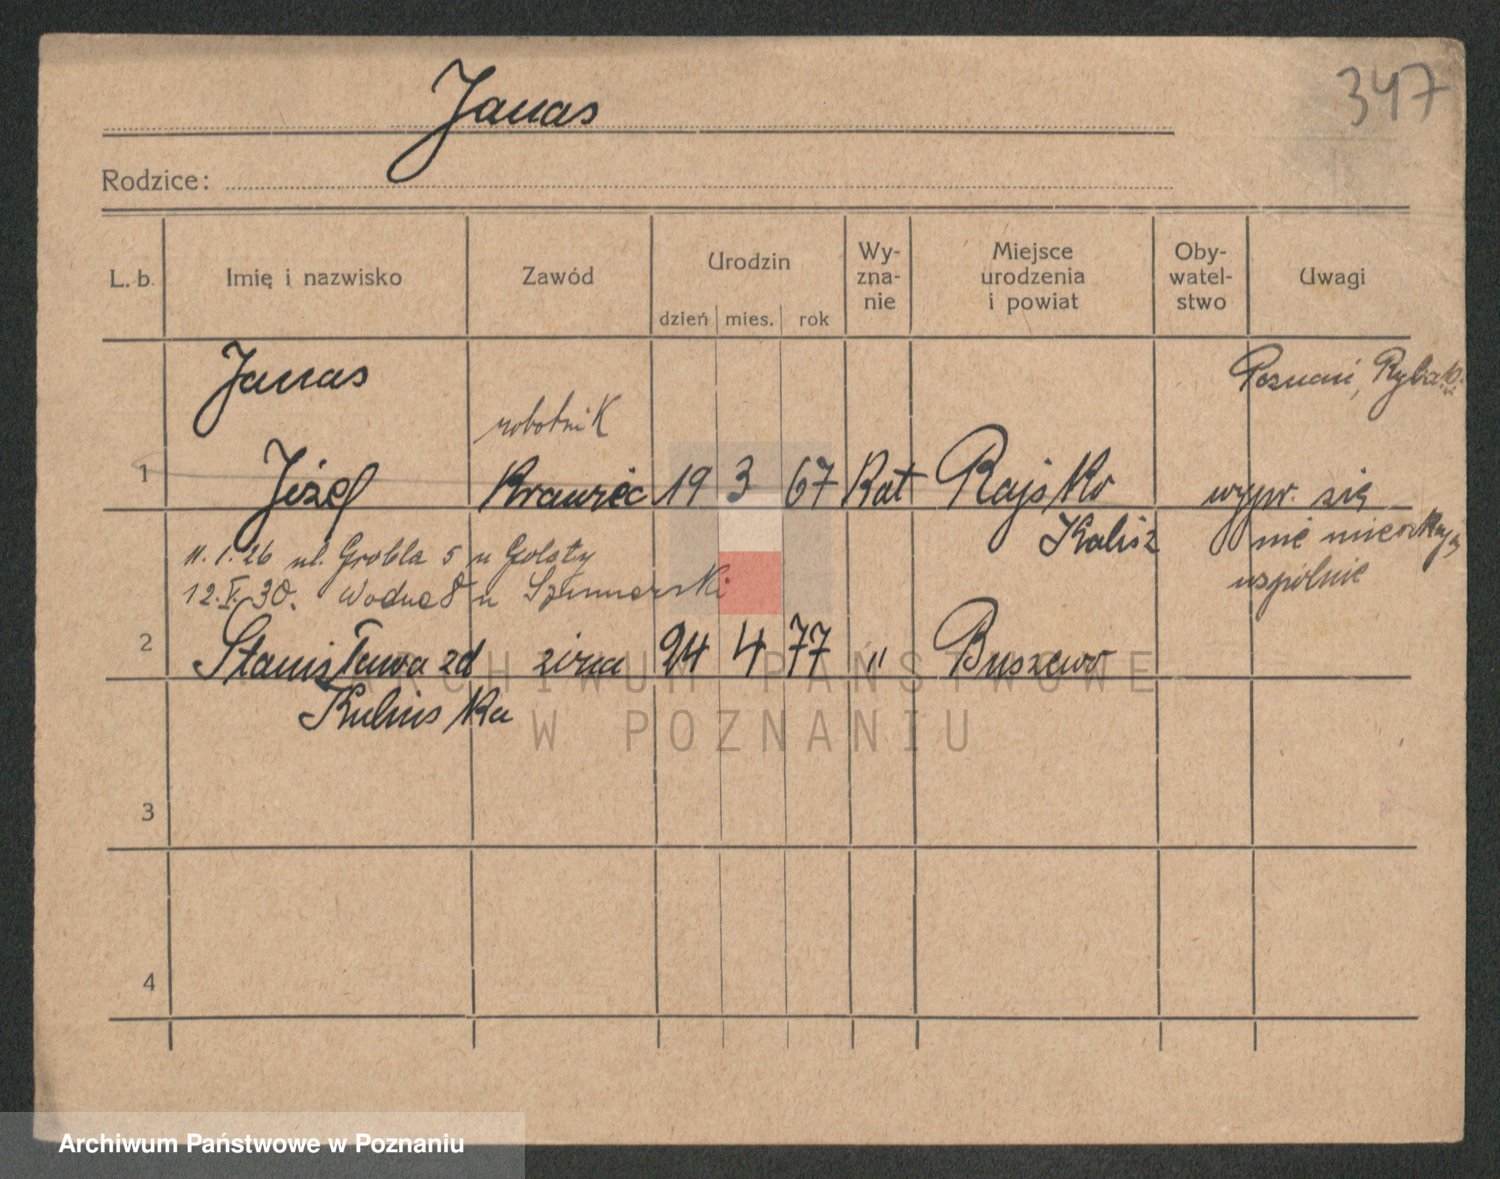 Janas
347
Rodzice:
L. b. Imię i nazwisko Zawód Urodzin dzień mies. rok Wy-zna-nie Miejsce urodzenia i powiat Oby-watel-stwo Uwagi
Janas Poznań, Rybak.
robotnik
1 Józef Krawiec 19 3 67 Kat Rajsko wypr. się
Kalisz nie mieszkają
11.1.26 ul. Grobla 5 u Golaty
wspólnie
12.V.30. Wodna 8 u Szumarski
2 Stanisława zd żona 24 4 77 " Buszewo
Kulinska
3
4
ARCHIWUM PAŃSTWOWE
W POZNANIU
Archiwum Państwowe w Poznaniu